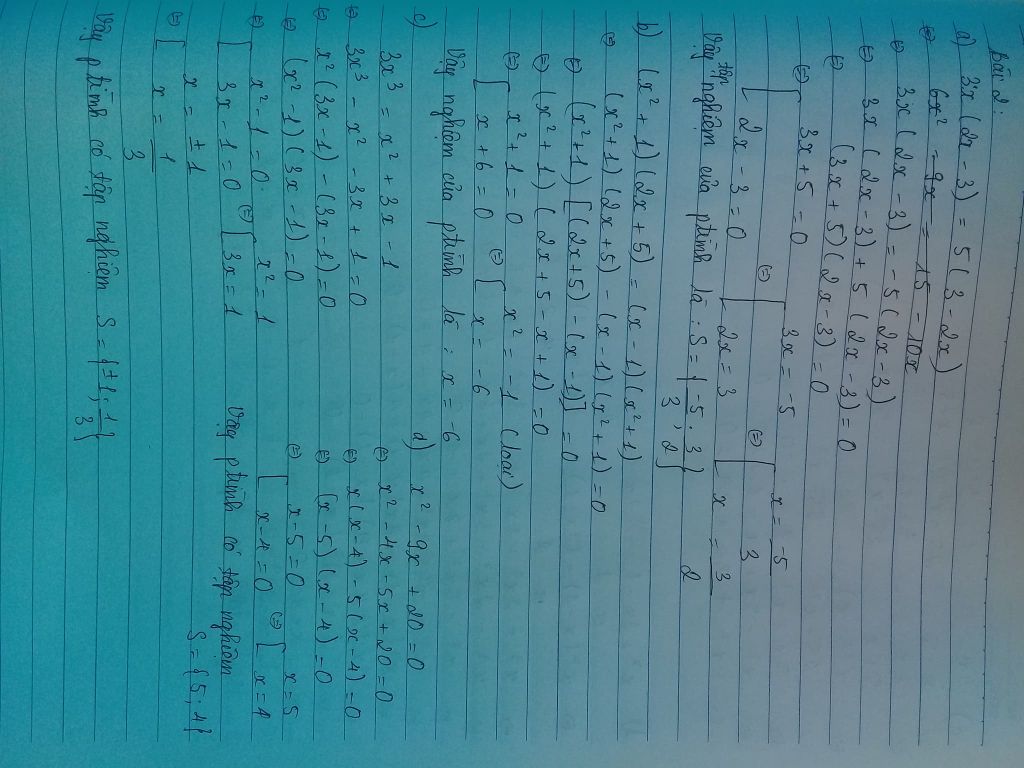 Bài 2:
a) 3x(2x - 3) = 5(3 - 2x)
⇔ 6x² - 9x = 15 - 10x
⇔ 3x(2x - 3) = -5(2x - 3)
⇔ 3x(2x - 3) + 5(2x - 3) = 0
⇔ (3x + 5)(2x - 3) = 0
⇔ [ 3x + 5 = 0 ⇔ [ 3x = -5 ⇔ [ x = -5/3
[ 2x - 3 = 0 [ 2x = 3 [ x = 3/2
Vậy tập nghiệm của ptrình là: S = {-5/3; 3/2}
b) (x² + 1)(2x + 5) = (x - 1)(x² + 1)
⇔ (x² + 1)(2x + 5) - (x - 1)(x² + 1) = 0
⇔ (x² + 1)[(2x + 5) - (x - 1)] = 0
⇔ (x² + 1)(2x + 5 - x + 1) = 0
⇔ [ x² + 1 = 0 ⇔ [ x² = -1 (loại)
[ x + 6 = 0 [ x = -6
Vậy nghiệm của ptrình là: x = -6
c) 3x³ = x² + 3x - 1
⇔ 3x³ - x² - 3x + 1 = 0
⇔ x²(3x - 1) - (3x - 1) = 0
⇔ (x² - 1)(3x - 1) = 0
⇔ [ x² - 1 = 0 ⇔ [ x² = 1
[ 3x - 1 = 0 [ 3x = 1
⇔ [ x = ±1
[ x = 1/3
Vậy ptrình có tập nghiệm S = {±1; 1/3}
d) x² - 9x + 20 = 0
⇔ x² - 4x - 5x + 20 = 0
⇔ x(x - 4) - 5(x - 4) = 0
⇔ (x - 5)(x - 4) = 0
⇔ [ x - 5 = 0 ⇔ [ x = 5
[ x - 4 = 0 [ x = 4
Vậy ptrình có tập nghiệm
S = {5; 4}